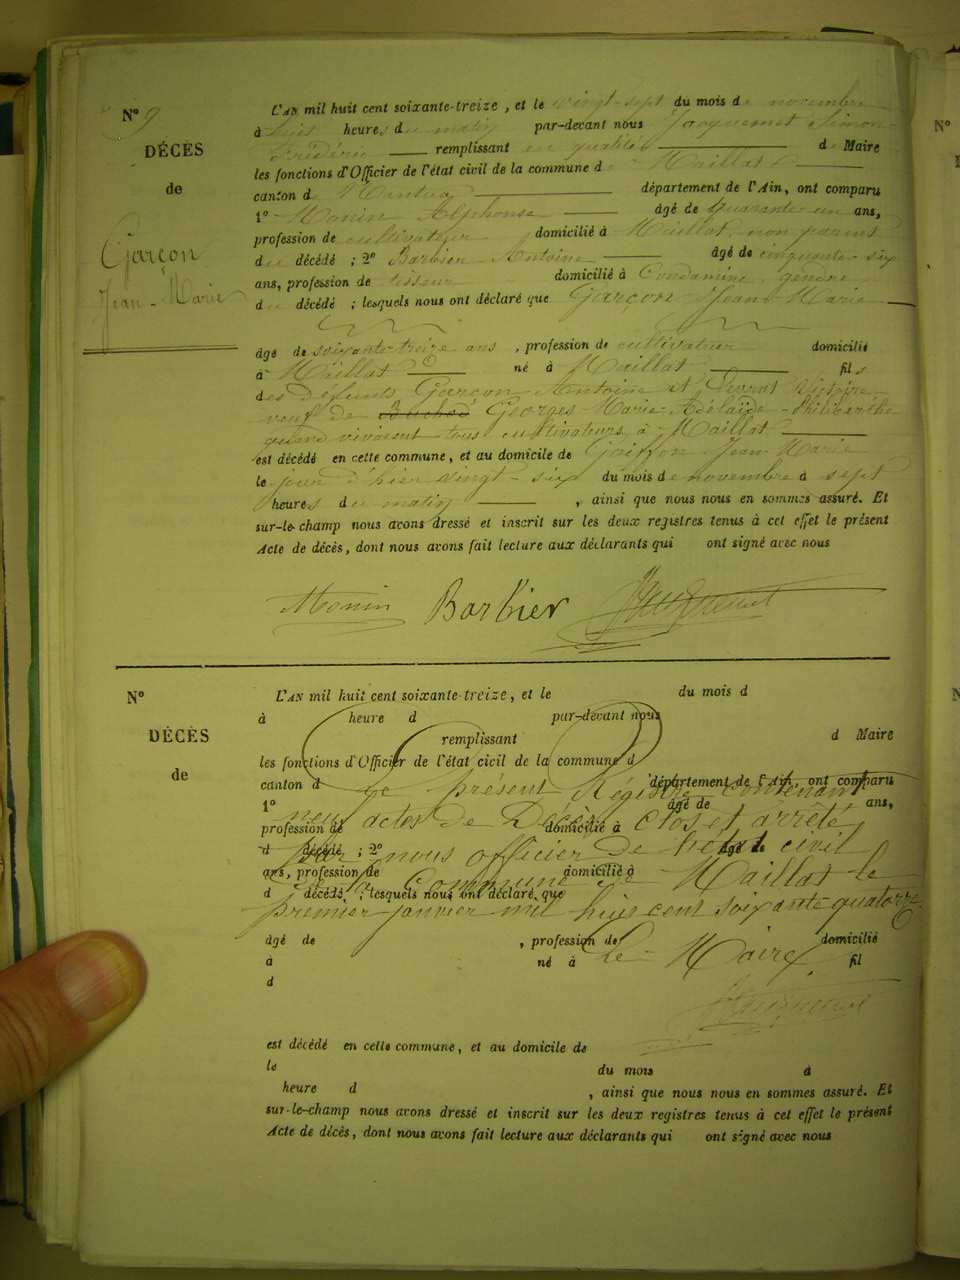 N° 9
DÉCÈS
de
Garçon
Jean-Marie
L'AN mil huit cent soixante-treize, et le vingt-sept du mois de novembre
à huit heures du matin par-devant nous Jacquemet Simon
Frédéric remplissant en qualité de Maire
les fonctions d'Officier de l'état civil de la commune de Maillat
canton de Nantua département de l'Ain, ont comparu
1° Monin Alphonse âgé de quarante un ans,
profession de cultivateur domicilié à Maillat, non parent
du décédé ; 2° Barbier Antoine âgé de cinquante-six
ans, profession de tisseur domicilié à Condamine, gendre
du décédé ; lesquels nous ont déclaré que Garçon Jean-Marie
âgé de soixante-treize ans, profession de cultivateur domicilié
à Maillat né à Maillat fils
des défunts Garçon Antoine et Victoire
veuf de Georges Marie-Adélaïde-Philiberthe
quand vivaient tous cultivateurs à Maillat
est décédé en cette commune, et au domicile de Jean-Marie
le jour d'hier vingt-six du mois de novembre à sept
heures du matin, ainsi que nous nous en sommes assuré. Et
sur-le-champ nous avons dressé et inscrit sur les deux registres tenus à cet effet le présent
Acte de décès, dont nous avons fait lecture aux déclarants qui ont signé avec nous
Monin Barbier Jacquemet
N°
DÉCÈS
de
L'AN mil huit cent soixante-treize, et le du mois d
à heure d par-devant nous
remplissant d Maire
les fonctions d'Officier de l'état civil de la commune d
canton d département de l'Ain, ont comparu
Le présent Régistre contenant
1° âgé de ans,
neuf actes de Décès clos et arrêté
profession de domicilié à
d décédé ; 2° âgé de
par nous officier de l'état civil
ans, profession de domicilié à
de la Commune de Maillat le
d décédé ; lesquels nous ont déclaré que
premier janvier mil huit cent soixante quatorze
âgé de , profession de domicilié
Le Maire
à né à fil
d
Jacquemet
est décédé en cette commune, et au domicile de
le du mois à
heure d , ainsi que nous nous en sommes assuré. Et
sur-le-champ nous avons dressé et inscrit sur les deux registres tenus à cet effet le présent
Acte de décès, dont nous avons fait lecture aux déclarants qui ont signé avec nous
N°